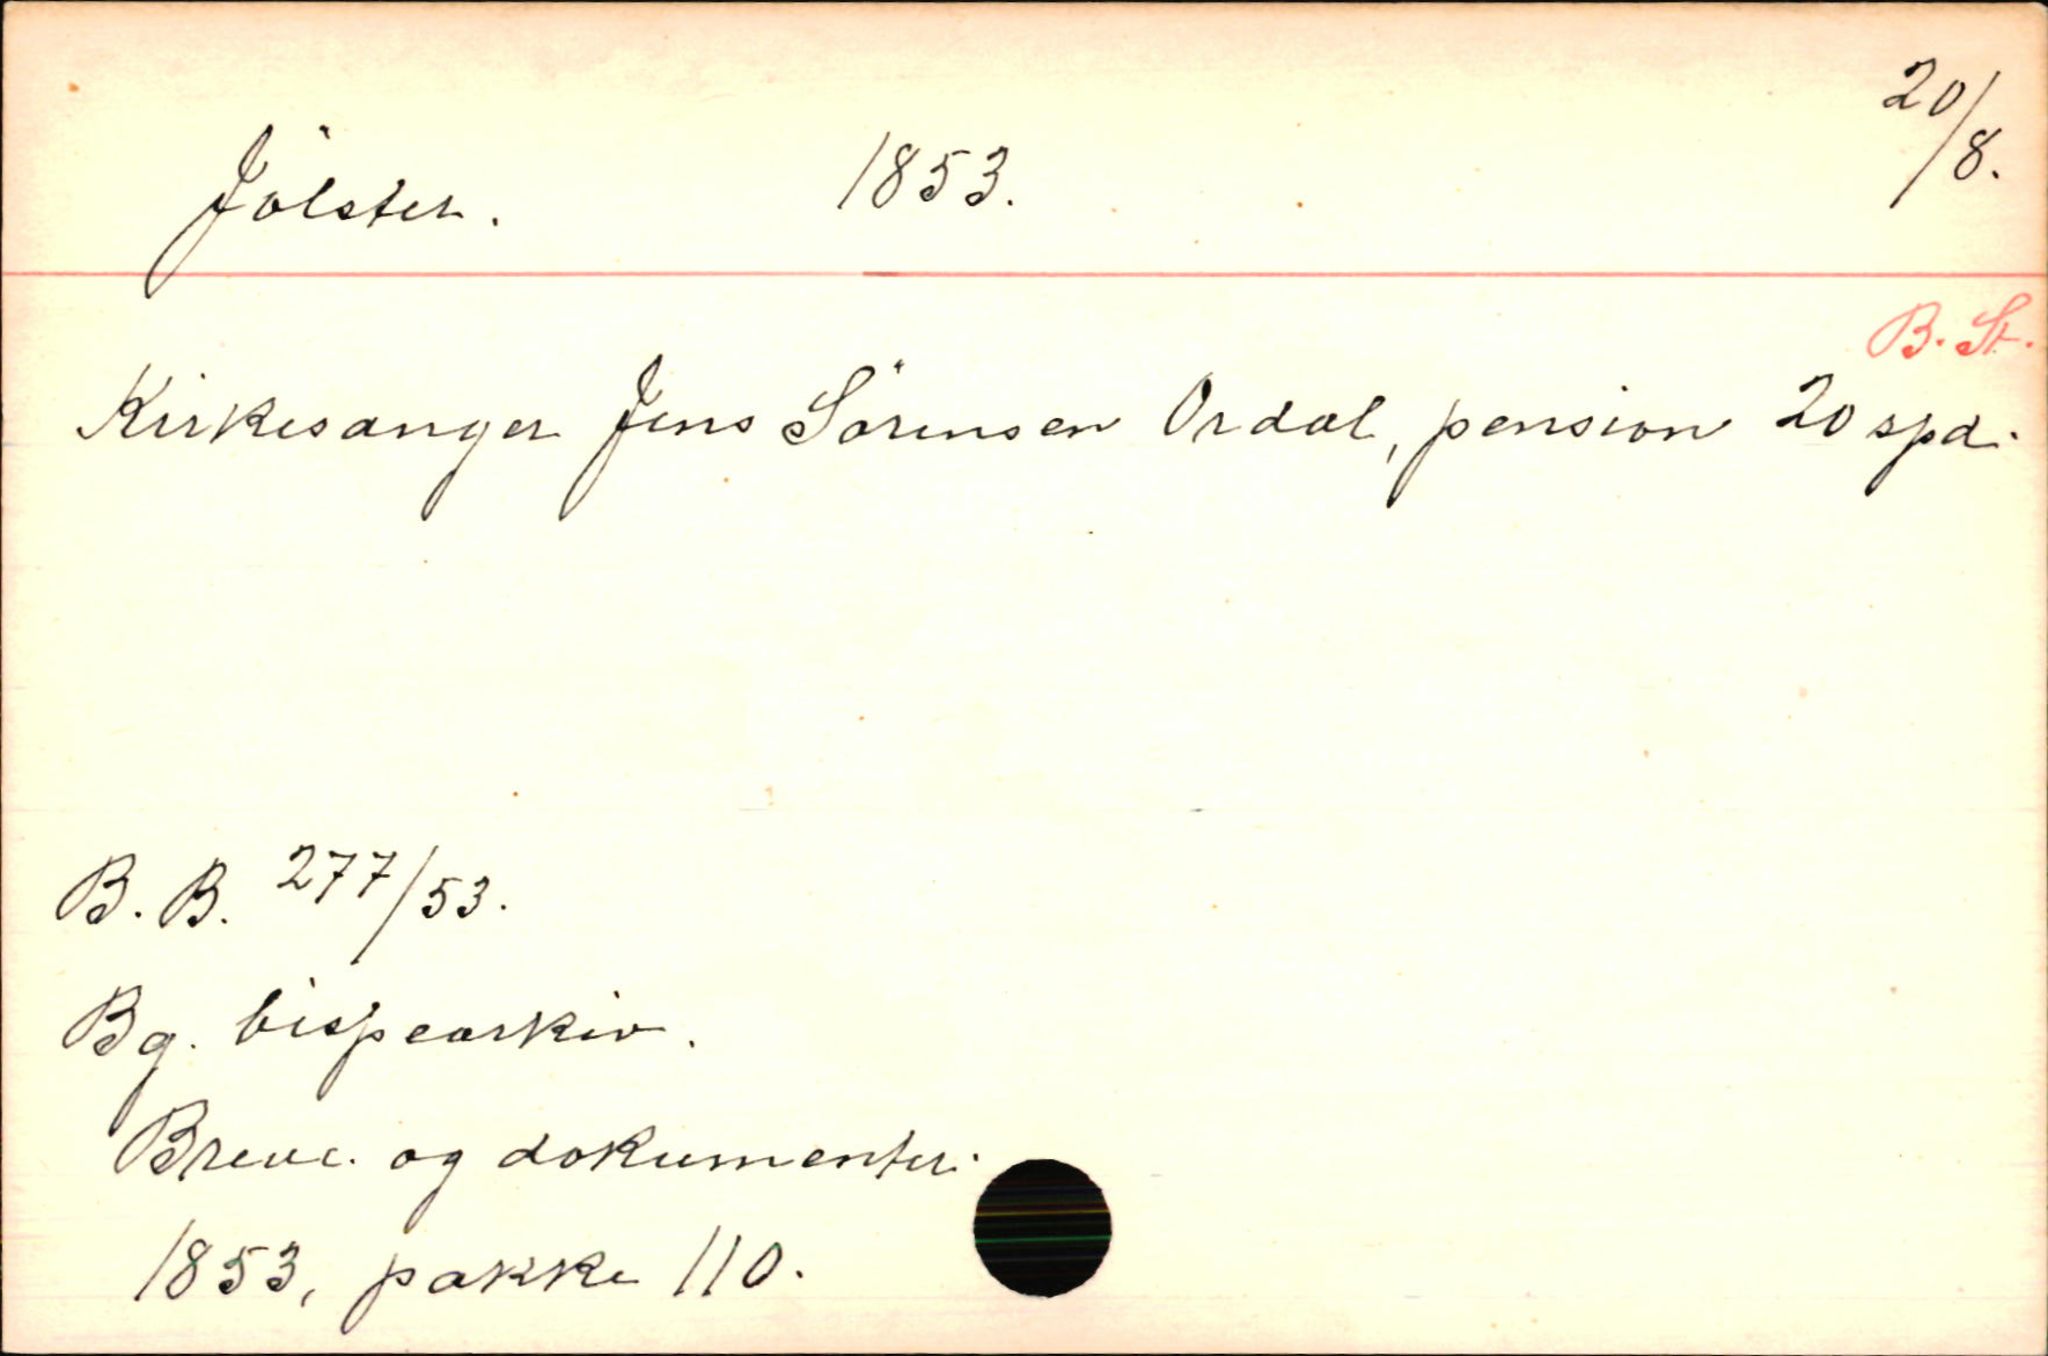 Jölster. 1853. 20/8.
B. St.
Kirkesanger Jens Sörensen Ordal, pension 20 spd.
B. B. 277/53.
Bg. bispearkiv.
Breve og dokumenter.
1853, pakke 110.